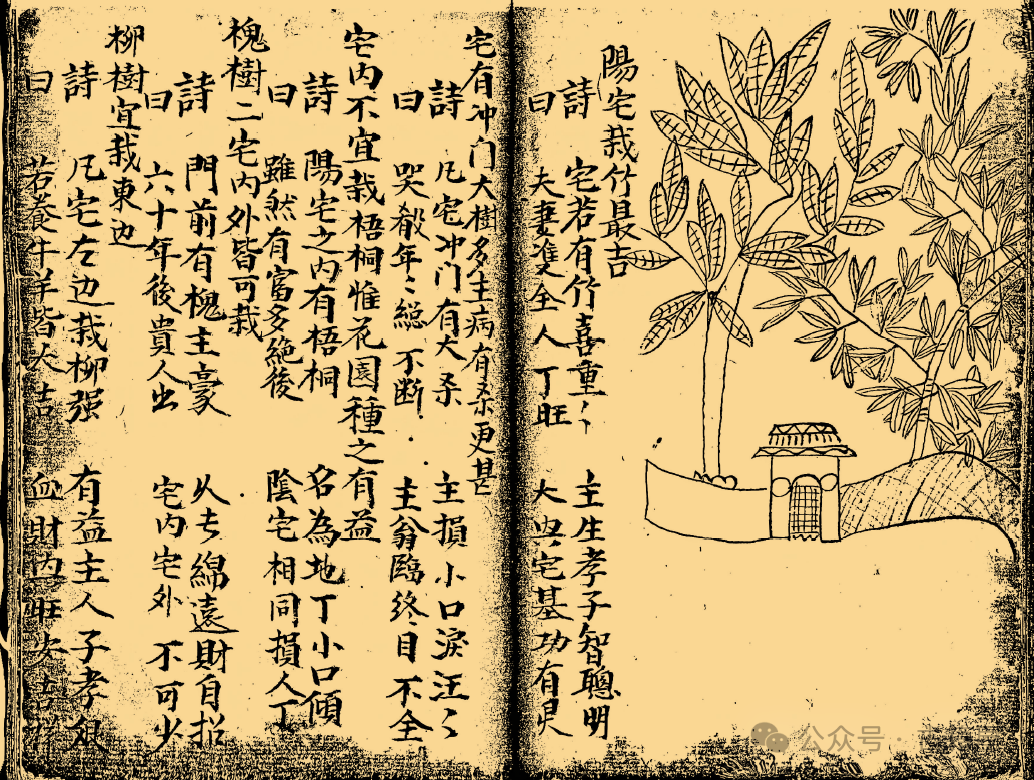 陽宅栽竹最吉
詩 宅若有竹喜重〻 主生孝子智聰明
曰 夫妻全人丁旺 大宅基功有灵
宅有冲门大樹多主病有桑更甚
詩 凢宅冲门有大桑 主損小口淚汪〻
曰 哭年〻縂不断 主翁臨終目不全
宅内不宜栽梧桐惟花園種之有益
詩 陽宅之内有梧桐 名為地丁小口傾
曰 雖然有富多絶後 陰宅相同損人丁
槐樹二宅内外皆可栽
詩 門前有槐主豪 綿遠財自招
曰 六十年後貴人出 宅内宅外不可少
柳樹宜栽東边
詩 凢宅左边栽柳强 有益主人子孝
曰 若養牛羊皆大吉 血財内旺安吉祥
公众号